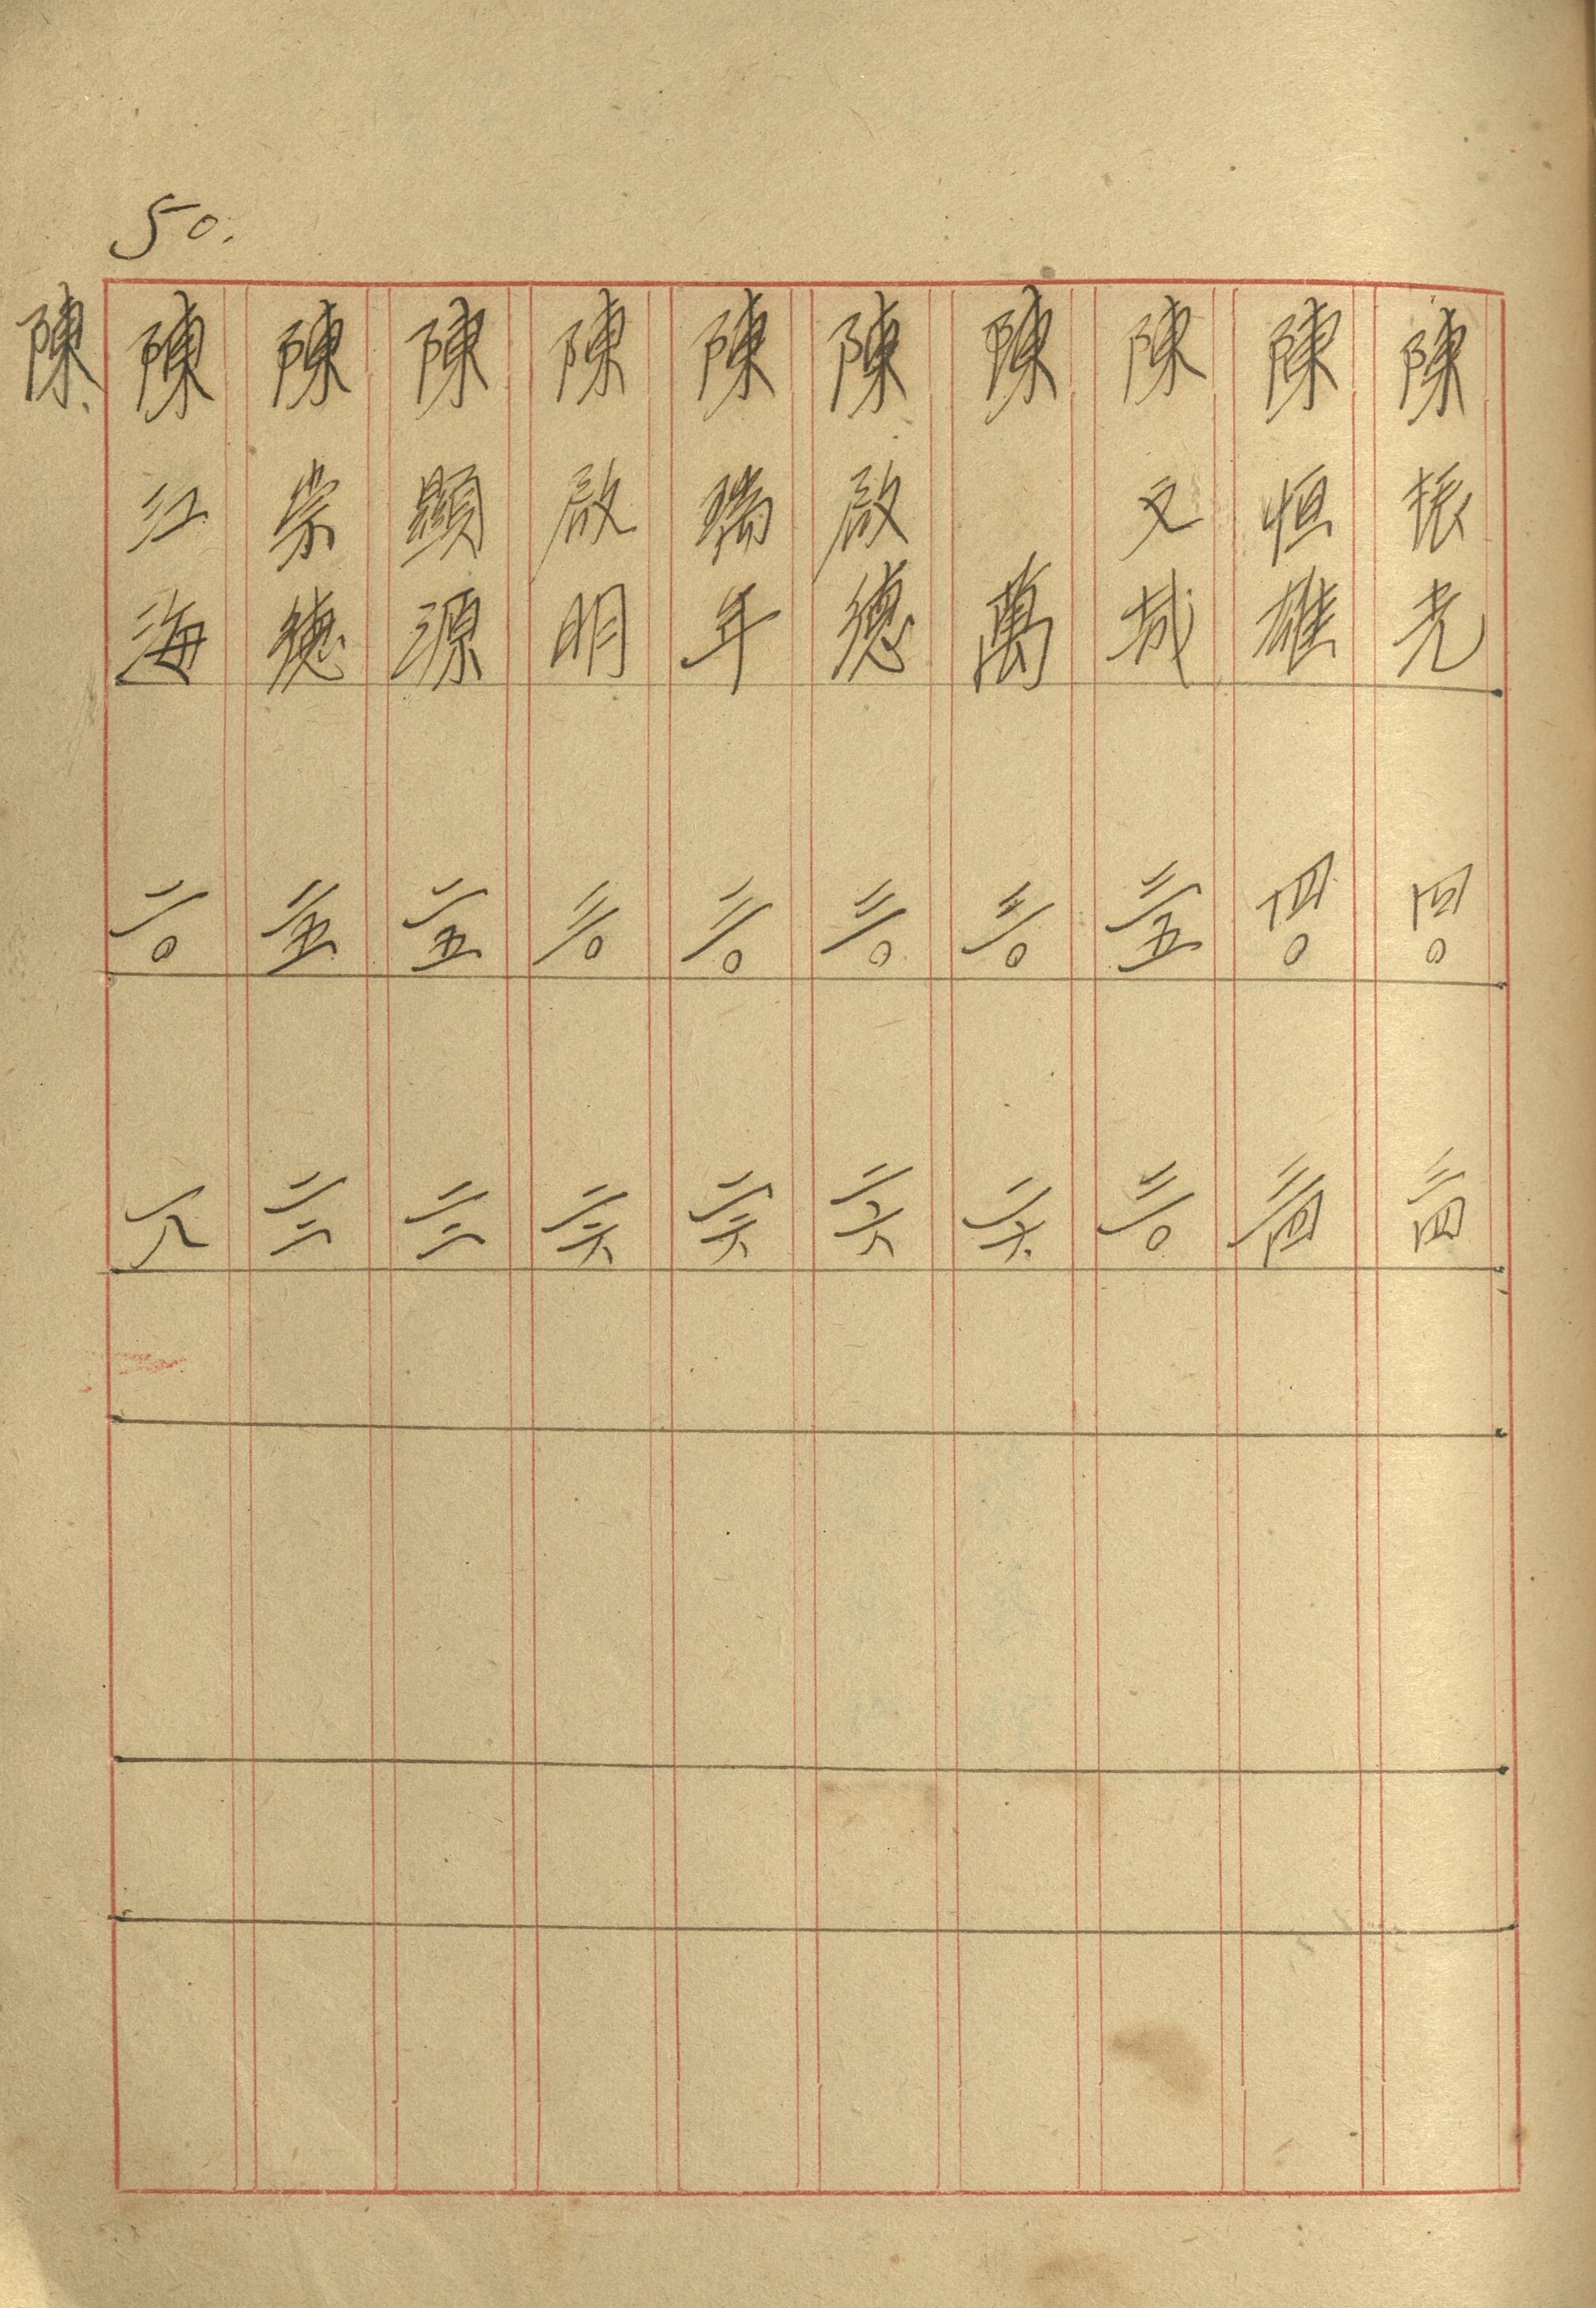 50.
陳振光 四〇 三四
陳恒雄 四〇 三四
陳文城 三五 三〇
陳萬 三〇 二六
陳啟德 三〇 二六
陳瑞年 三〇 二六
陳啟明 三〇 二六
陳顯源 二五 二二
陳崇德 二五 二二
陳江海 二〇 一八
陳